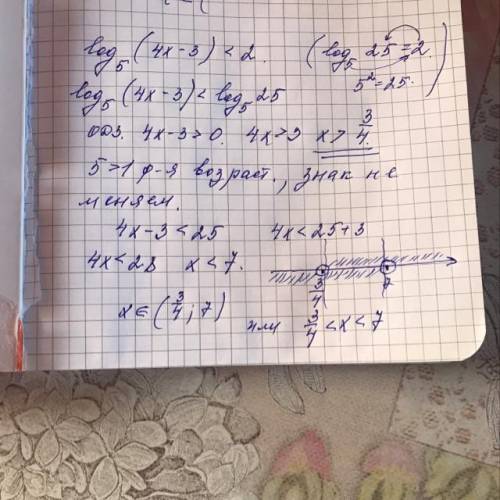 log₅ (4x-3) < 2. (log₅ 25 = 2.
5² = 25.)
log₅ (4x-3) < log₅ 25
ОДЗ. 4x-3>0. 4x>3 x > 3/4.
5>1 ф-я возраст., знак не
меняем.
4x-3 < 25 4x < 25+3
4x < 28 x < 7.
3/4 7
x ∈ (3/4; 7)
или 3/4 < x < 7